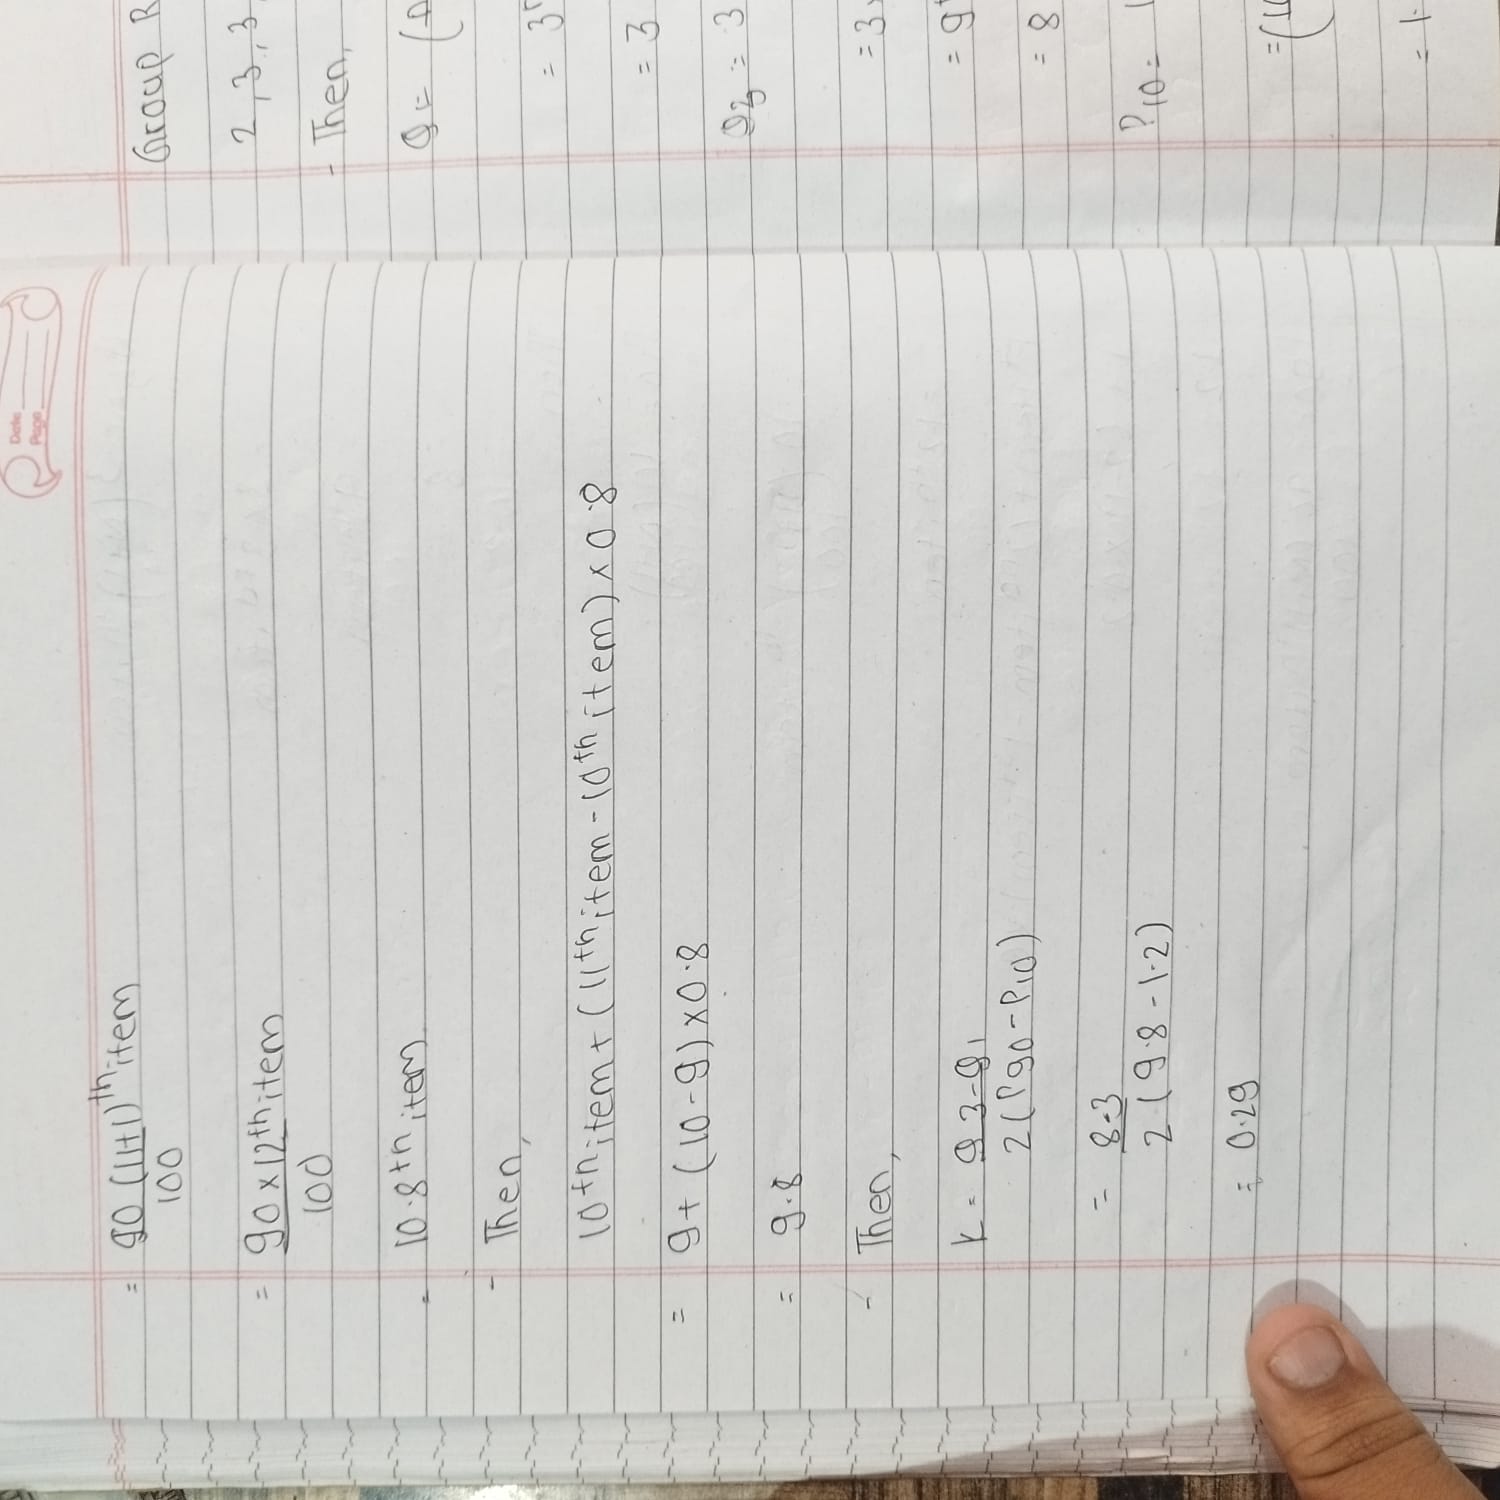 Date
Page
= 90 (11+1)th item
100
= 90 × 12th item
100
= 10.8th item
- Then,
10th item + (11th item - 10th item) × 0.8
= 9 + (10 - 9) × 0.8
= 9.8
- Then,
k = Q3 - Q1
2(P90 - P10)
= 8-3
2 (9.8 - 1.2)
= 0.29
Group
2, 3, 3
- Then,
Q =
= 3
= 3
Q3 = 3
= 3
= 9
= 8
P10 =
= 1.